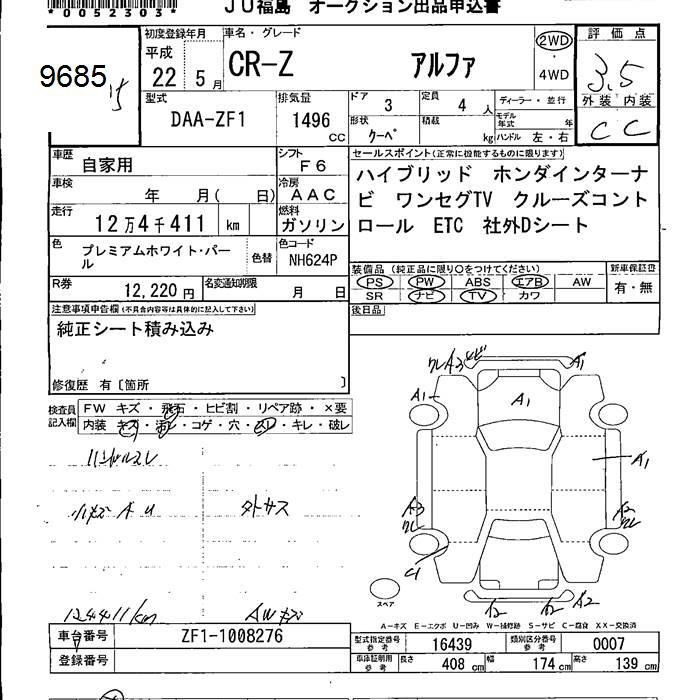 *0052303*
JU福島 オークション出品申込書
9685
初度登録年月
平成
22 5月
車名・グレード
CR-Z アルファ
2WD
4WD
評価点
3.5
外装 内装
C C
型式
DAA-ZF1
排気量
1496
CC
ドア 3
定員 4 人
ディーラー・並行
形状
クーペ
積載
kg
モデル年式 年
ハンドル 左・右
車歴 自家用
シフト F6
車検 年 月( 日)
冷房 AAC
走行 12万4千411 km
燃料 ガソリン
色 プレミアムホワイト・パール
色替
色コード NH624P
R券 12,220円
名変通知期限 月 日
セールスポイント(正常に機能するものに限ります)
ハイブリッド ホンダインターナ
ビ ワンセグTV クルーズコント
ロール ETC 社外Dシート
装備品(純正品に限り○をつけてください)
新車保証書
PS PW ABS エアB AW
SR ナビ TV カワ
有・無
後日品
注意事項申告欄(不具合内容等は具体的に記入して下さい)
純正シート積み込み
修復歴 有〔箇所 〕
検査員記入欄
FW キズ・飛石・ヒビ割・リペア跡・×要
内装 キズ・汚レ・コゲ・穴・スレ・キレ・破レ
ハンドルスレ
小キズ A U
タトサス
124411km
AWキズ
A1
A1
A1
A1
A3
A2
C1
A2
スペア
A-キズ E-エクボ U-凹み W-補修跡 S-サビ C-腐食 XX-交換済
車台番号 ZF1-1008276
登録番号
型式指定番号 参考 16439
類別区分番号 参考 0007
車庫証明用 参考
長さ 408 cm
幅 174 cm
高さ 139 cm